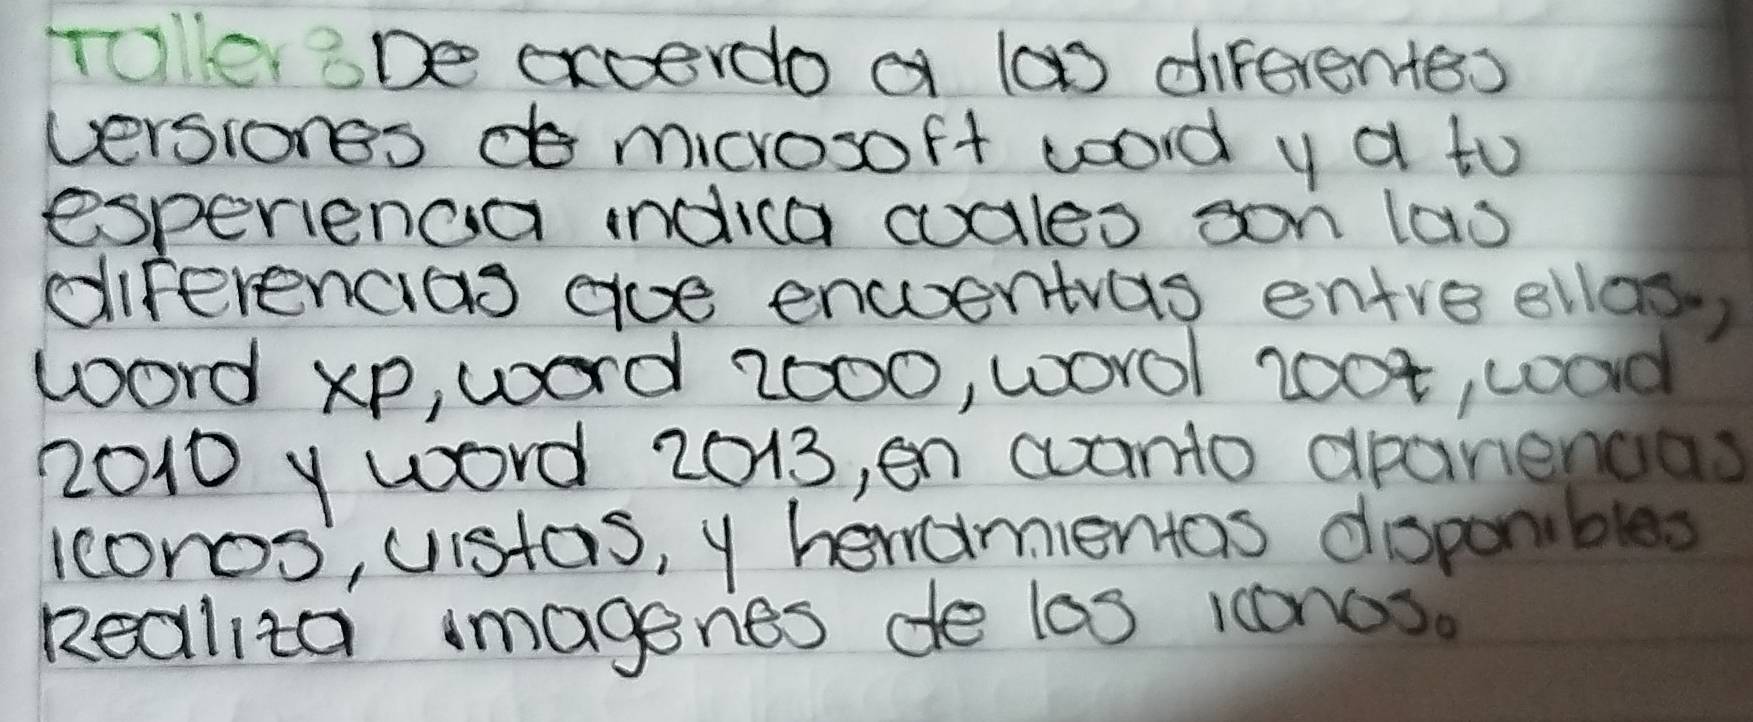 Taller: De acuerdo a las diferentes
versiones de microsoft word y a tu
esperiencia indica cuales son las
diferencias que encuentras entre ellas,
word xp, word 2000, word 2007, word
2010 y word 2013, en cuanto apariencias
iconos, vistas, y herramientas disponibles
Realiza imagenes de los iconos.